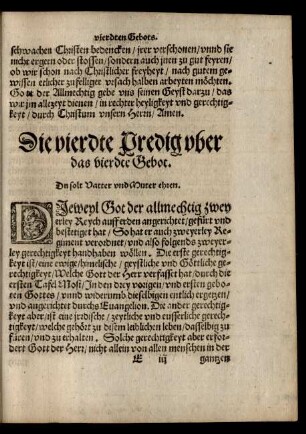 vierdten Gebots.
schwachen Christen bedencken / jrer verschonen / vnnd sie
nicht ergern oder stossen / sondern auch jnen zu gut feyren /
ob wir schon nach Christlicher freyheyt / nach gutem ge-
wissen etlicher zufelliger vrsach halben arbeyten möchten.
Gott der Allmechtig gebe vns seinen Geyst darzu / das
wir jm allezeyt dienen / in rechter heyligkeyt vnd gerechtig-
keyt / durch Christum vnsern Herrn / Amen.
Die vierdte Predig vber
das vierdte Gebot.
Du solt Vatter vnd Muter ehren.
DJeweyl Got der allmechtig zwey
erley Reych auff erden angerichtet / gefürt vnd
bestetiget hat / So hat er auch zweyerley Re-
giment verordnet / vnd also folgends zweyer-
ley gerechtigkeyt handhaben wöllen. Die erste gerechtig-
keyt ist / eine ewige / himelische / geystliche vnd Göttliche ge-
rechtigkeyt / Welche Gott der Herr verfasset hat / durch die
ersten Tafel Mosi / Jn den drey vorigen / vnd ersten gebo-
ten Gottes / vnnd widerumb dieselbigen entlich ergetzen /
vnd angerichtet durchs Euangelion. Die ander gerechtig-
keyt aber / ist eine jrdische / zeytliche vnd eusserliche gerech-
tigkeyt / welche gehört zu disem leiblichen leben / dasselbig zu
füren / vnd zu erhalten. Solche gerechtigkeyt aber erfor-
dert Gott der Herr / nicht allein von allen menschen in der
E iij gantzen